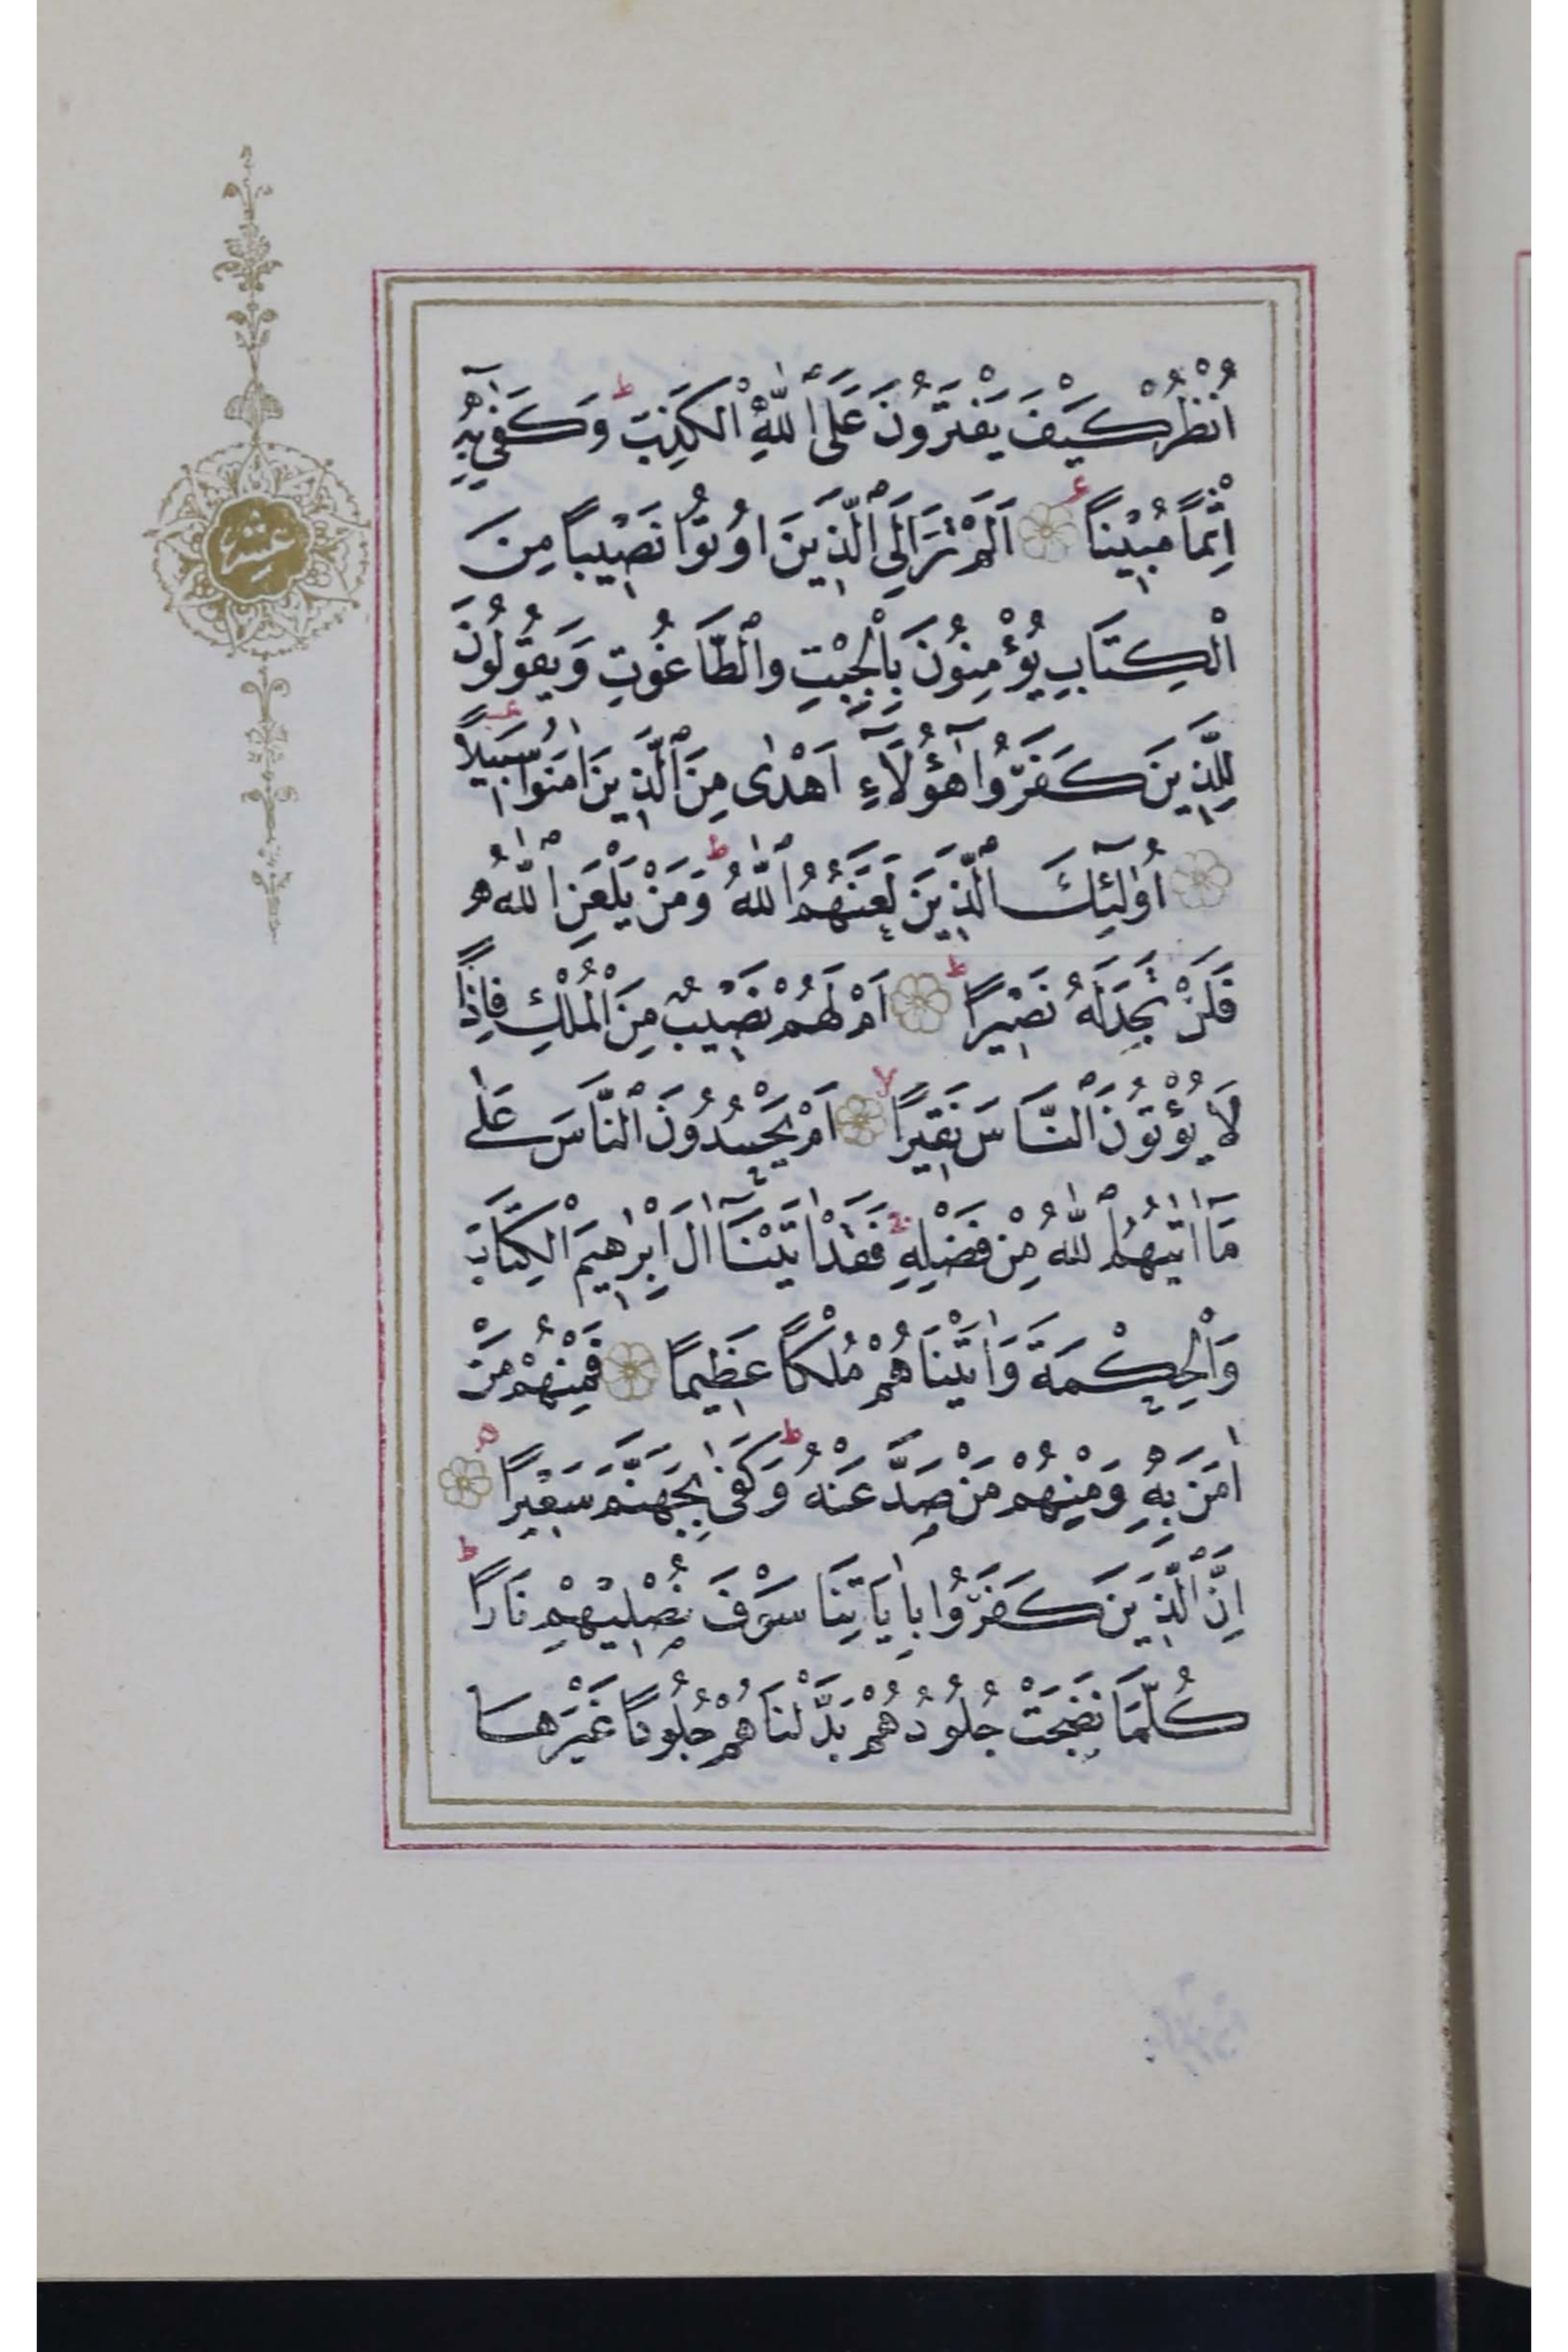 اُنْظُرْ كَيْفَ يَفْتَرُونَ عَلَى اللّٰهِ الْكَذِبَ ط وَكَفٰى بِهٖٓ
اِثْمًا مُبٖينًا ع اَلَمْ تَرَ اِلَى الَّذٖينَ اُوتُوا نَصٖيبًا مِنَ
الْكِتَابِ يُؤْمِنُونَ بِالْجِبْتِ وَالطَّاغُوتِ وَيَقُولُونَ
لِلَّذٖينَ كَفَرُوا هٰٓؤُلَٓاءِ اَهْدٰى مِنَ الَّذٖينَ اٰمَنُوا سَبٖيلًا
اُولٰٓئِكَ الَّذٖينَ لَعَنَهُمُ اللّٰهُ ط وَمَنْ يَلْعَنِ اللّٰهُ
فَلَنْ تَجِدَ لَهُ نَصٖيرًا ط اَمْ لَهُمْ نَصٖيبٌ مِنَ الْمُلْكِ فَاِذًا
لَا يُؤْتُونَ النَّاسَ نَقٖيرًا لا اَمْ يَحْسُدُونَ النَّاسَ عَلٰى
مَٓا اٰتٰيهُمُ اللّٰهُ مِنْ فَضْلِهٖ ج فَقَدْ اٰتَيْنَٓا اٰلَ اِبْرٰهٖيمَ الْكِتَابَ
وَالْحِكْمَةَ وَاٰتَيْنَاهُمْ مُلْكًا عَظٖيمًا فَمِنْهُمْ مَنْ
اٰمَنَ بِهٖ وَمِنْهُمْ مَنْ صَدَّ عَنْهُ ط وَكَفٰى بِجَهَنَّمَ سَعٖيرًا ه
اِنَّ الَّذٖينَ كَفَرُوا بِاٰيَاتِنَا سَوْفَ نُصْلٖيهِمْ نَارًا ط
كُلَّمَا نَضِجَتْ جُلُودُهُمْ بَدَّلْنَاهُمْ جُلُودًا غَيْرَهَا
عشر